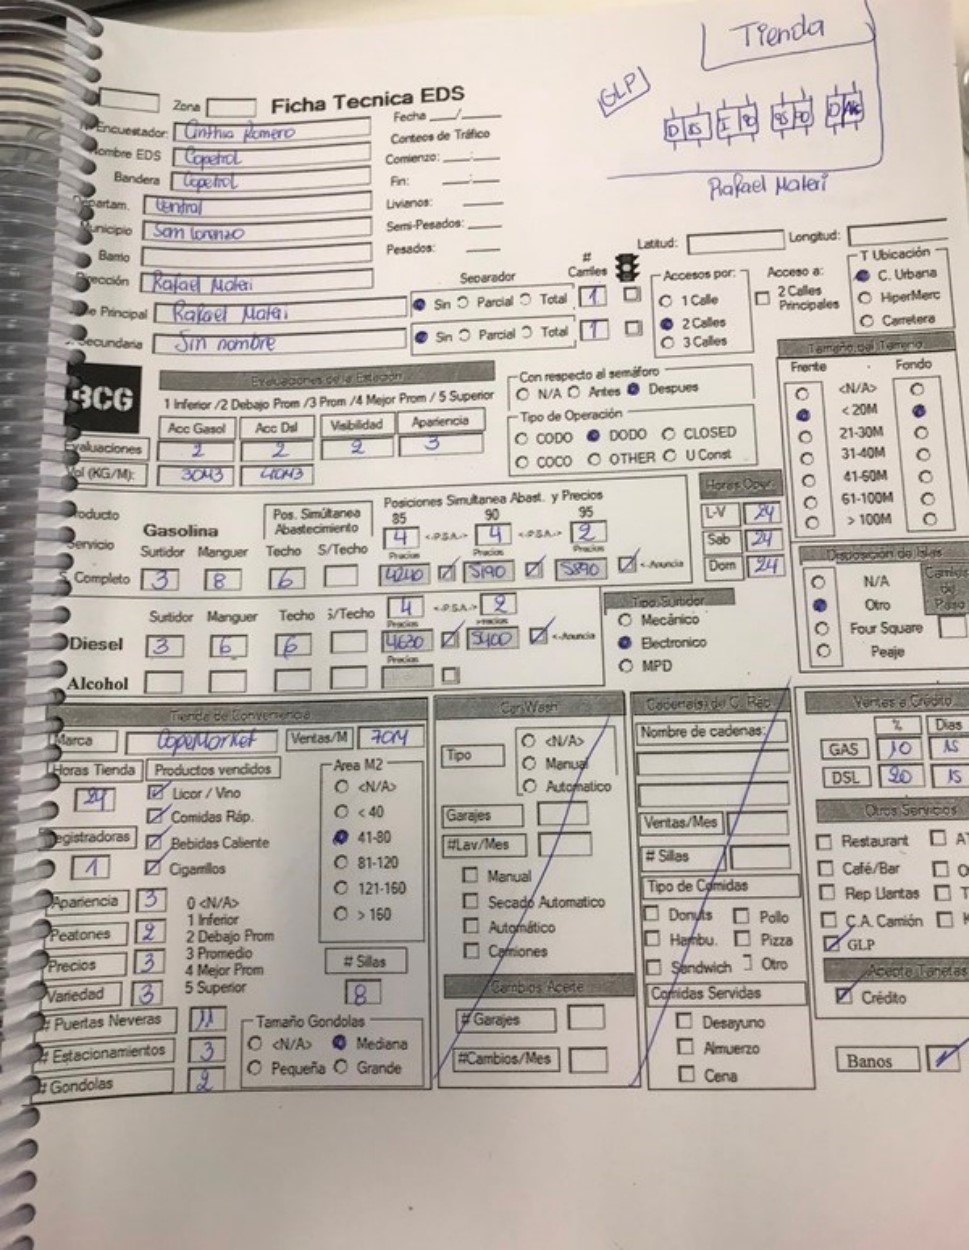 Tienda
GLP
D 85 I 90 95 90 D
Rafael Materi
Zona
Ficha Tecnica EDS
Encuestador: Cinthia Romero
Nombre EDS Copetrol
Bandera Copetrol
Departam. Central
Municipio San Lorenzo
Barrio
Dirección Rafael Materi
Principal Rafael Materi
Secundaria Sin nombre
Fecha ___/___
Conteos de Tráfico
Comienzo: ___:___
Fin: ___:___
Livianos: ___
Semi-Pesados: ___
Pesados: ___
Latitud:
Longitud:
Separador
# Carriles
Sin Parcial Total 1
Sin Parcial Total 1
Accesos por:
1 Calle
2 Calles
3 Calles
Acceso a:
2 Calles Principales
T Ubicación
C. Urbana
HiperMerc
Carretera
BCG
Evaluaciones de la Estación
1 Inferior /2 Debajo Prom /3 Prom /4 Mejor Prom / 5 Superior
Acc Gasol Acc Dsl Visibilidad Apariencia
Evaluaciones 2 2 2 3
Vol (KG/M): 30M3 40M3
Con respecto al semáforo
N/A Antes Despues
Tipo de Operación
CODO DODO CLOSED
COCO OTHER U Const
Tamaño del Terreno
Frente Fondo
<N/A>
< 20M
21-30M
31-40M
41-60M
61-100M
> 100M
Producto
Servicio
Gasolina
Pos. Simúltánea Abastecimiento
Posiciones Simultanea Abast. y Precios
85 90 95
4 <.P.S.A.> 4 <.P.S.A.> 2
Surtidor Manguer Techo S/Techo Precios Precios Precios
Completo 3 8 6 4240 5190 5890 <-Anuncia
Horas Oper.
L-V 24
Sab 24
Dom 24
Surtidor Manguer Techo S/Techo 4 <.P.S.A.> 2
Precios Precios
Diesel 3 6 6 4630 5400 <-Anuncia
Precios
Alcohol
Tipo Surtidor
Mecánico
Electronico
MPD
Disposición de Islas
N/A
Otro
Four Square
Peaje
Tienda de Conveniencia
Marca CopeMarket Ventas/M 70M
Horas Tienda 24
Productos vendidos
Licor / Vino
Comidas Ráp.
Bebidas Caliente
Cigarrillos
Registradoras 1
Area M2
<N/A>
< 40
41-80
81-120
121-160
> 160
Apariencia 3
Peatones 2
Precios 3
Variedad 3
0 <N/A>
1 Inferior
2 Debajo Prom
3 Promedio
4 Mejor Prom
5 Superior
# Sillas
8
# Puertas Neveras 11
# Estacionamientos 3
# Gondolas 2
Tamaño Gondolas
<N/A> Mediana
Pequeña Grande
Car Wash
Tipo
<N/A>
Manual
Automatico
Garajes
#Lav/Mes
Manual
Secado Automatico
Automático
Camiones
Cambios Aceite
# Garajes
#Cambios/Mes
Cadena(s) de C. Rap.
Nombre de cadenas:
Ventas/Mes
# Sillas
Tipo de Comidas
Donuts Pollo
Hambu. Pizza
Sandwich Otro
Comidas Servidas
Desayuno
Almuerzo
Cena
Ventas a Crédito
% Dias
GAS 10 15
DSL 20 15
Otros Servicios
Restaurant
Café/Bar
Rep Llantas
C.A. Camión
GLP
Acepta Tarjetas
Crédito
Banos